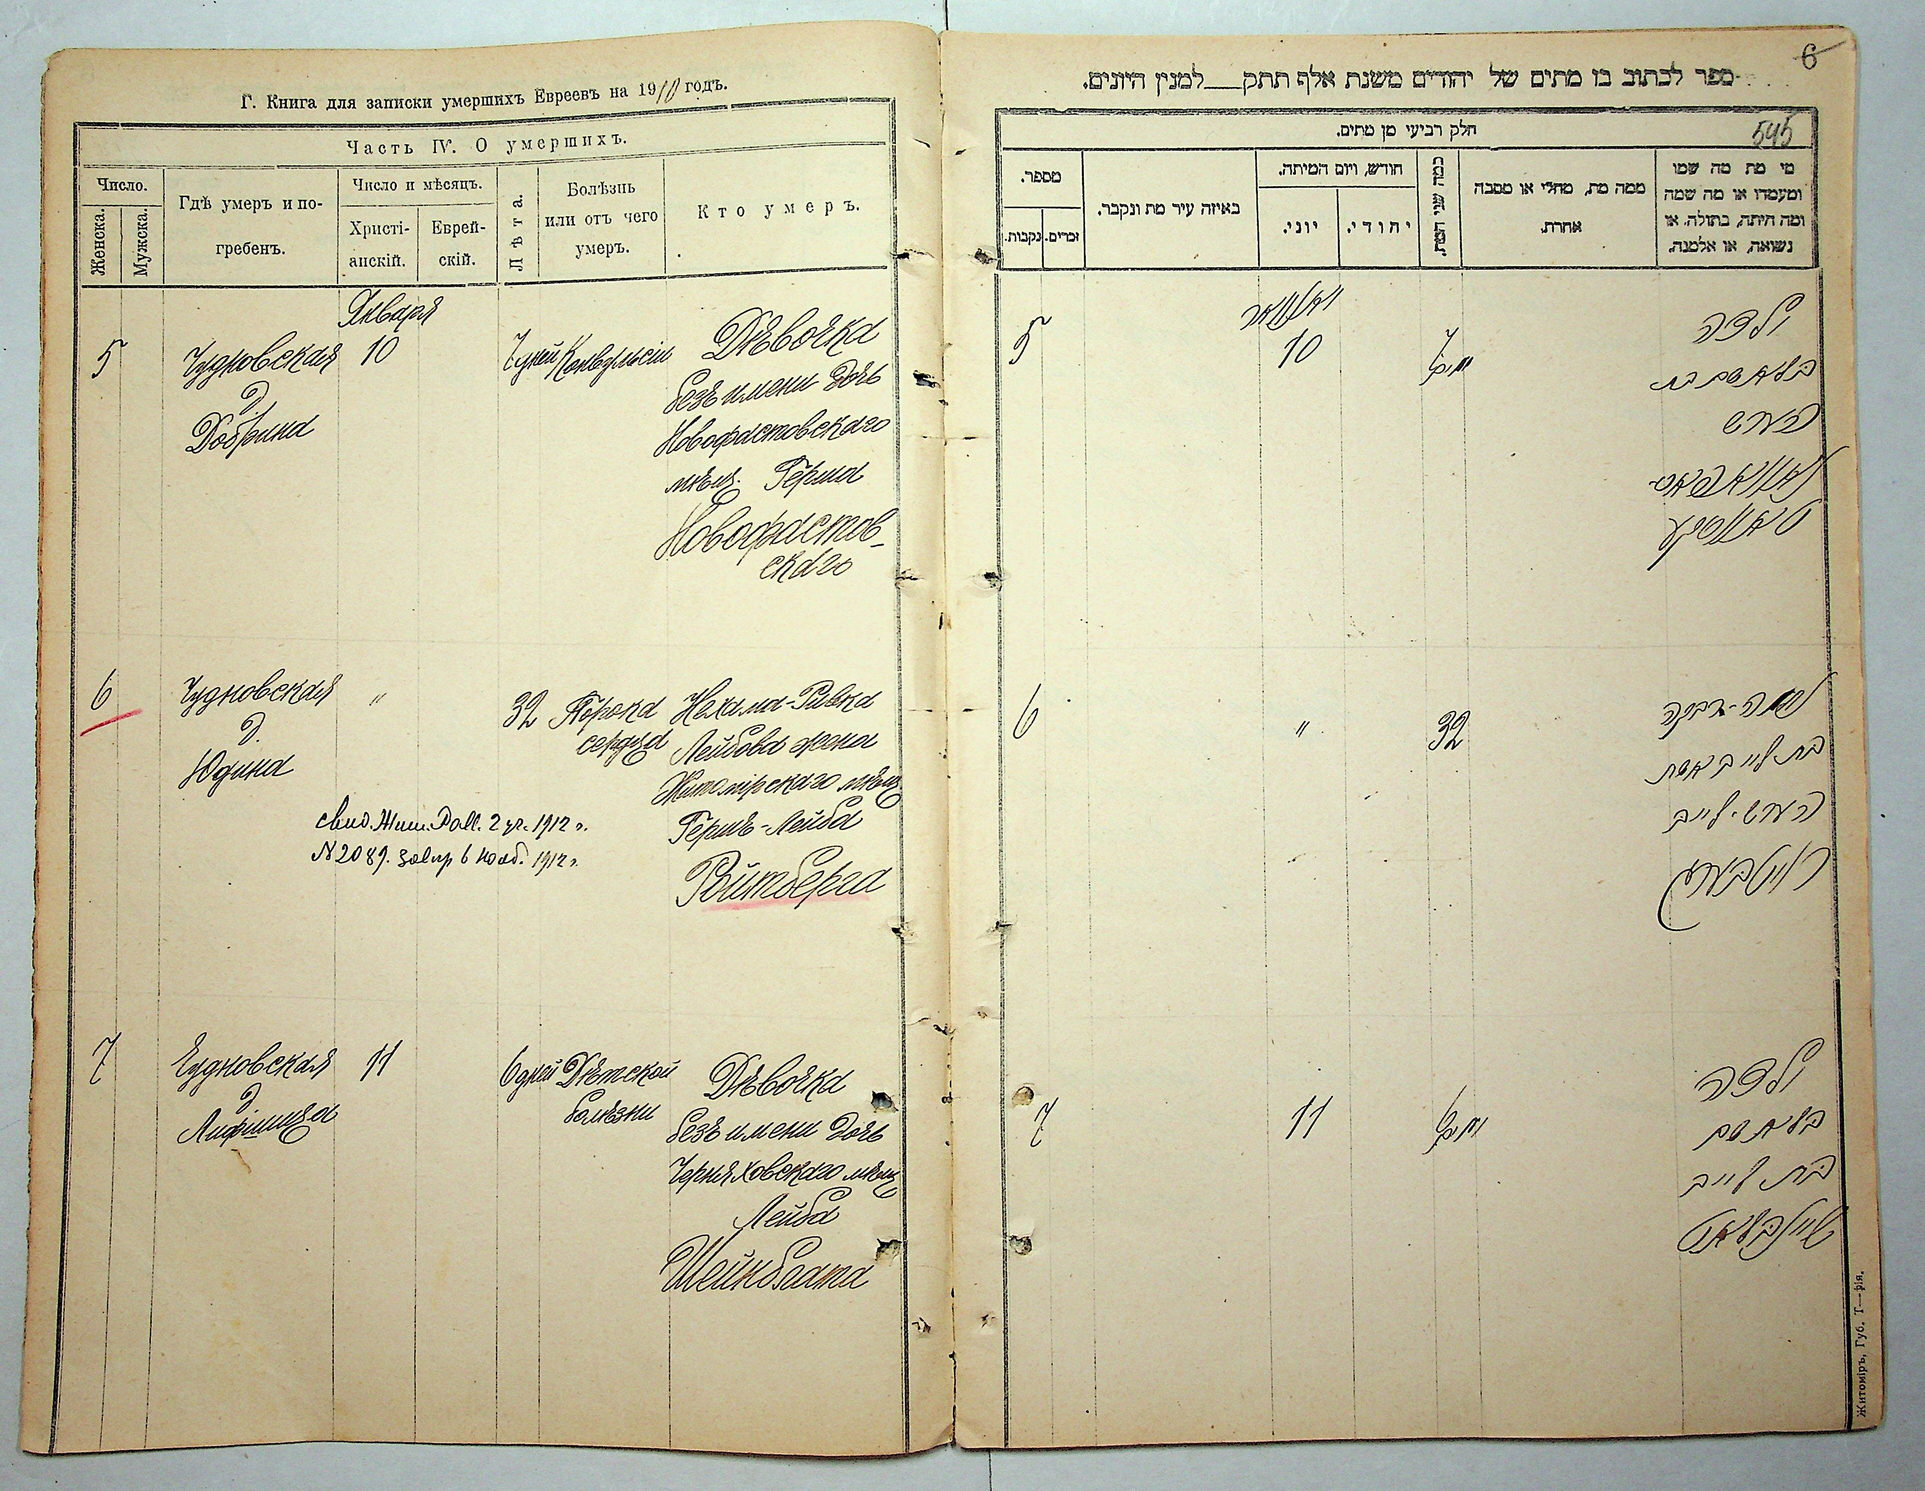 Г. Книга для записки умершихъ Евреевъ на 1910 годъ.
Часть IV. О умершихъ.
Число.
Женска.
Мужска.
Гдѣ умеръ и по-
гребенъ.
Число и мѣсяцъ.
Христі-
анскій.
Еврей-
скій.
Лѣта.
Болѣзнь
или отъ чего
умеръ.
Кто умеръ.
Января
5
Чудновская
д.
Добрина
10
7 дней
Конвульсіи
Дѣвочка
безъ имени дочь
Новофастовскаго
мѣщ. Герша
Новофастов-
скаго
6
Чудновская
д.
Юдина
"
32
Порока
сердца
Нехама-Ривка
Лейбова жена
Житомірскаго мѣщ
Гершъ-Лейба
Ройтберга
свид. Жит. 2 уч. 1912 г.
N 2089. 1912 г.
7
Чудновская
д
Лифшица
11
6 дней
Дѣтской
болѣзни
Дѣвочка
безъ имени дочь
Черняховскаго мѣщ
Лейба
Шейнблата
6
ספר לכתוב בו מתים של יהודים משנת אלף תתק___למנין היונים.
545
חלק רביעי מן מתים.
מי מת מה שמו
ומעמדו או מה שמה
ומה היתה, בתולה. או
נשואה, או אלמנה.
ממה מת, מחלי או מסבה
אחרת.
כמה שני המת.
חודש, ויום המיתה.
יהודי.
יוני.
באיזה עיר מת ונקבר.
מספר.
זכרים.
נקבות.
יאנואר
5
10
7
ימים
ילדה
בלא שם בת
הערש
נאוואפאס
טאווסקע
6
"
32
נחמה-רבקה
בת לייב אשת
הערש-לייב
רויטבערג
7
11
6
ימים
ילדה
בלא שם
בת לייב
שיינבלאט
Житоміръ, Губ. Т—рія.